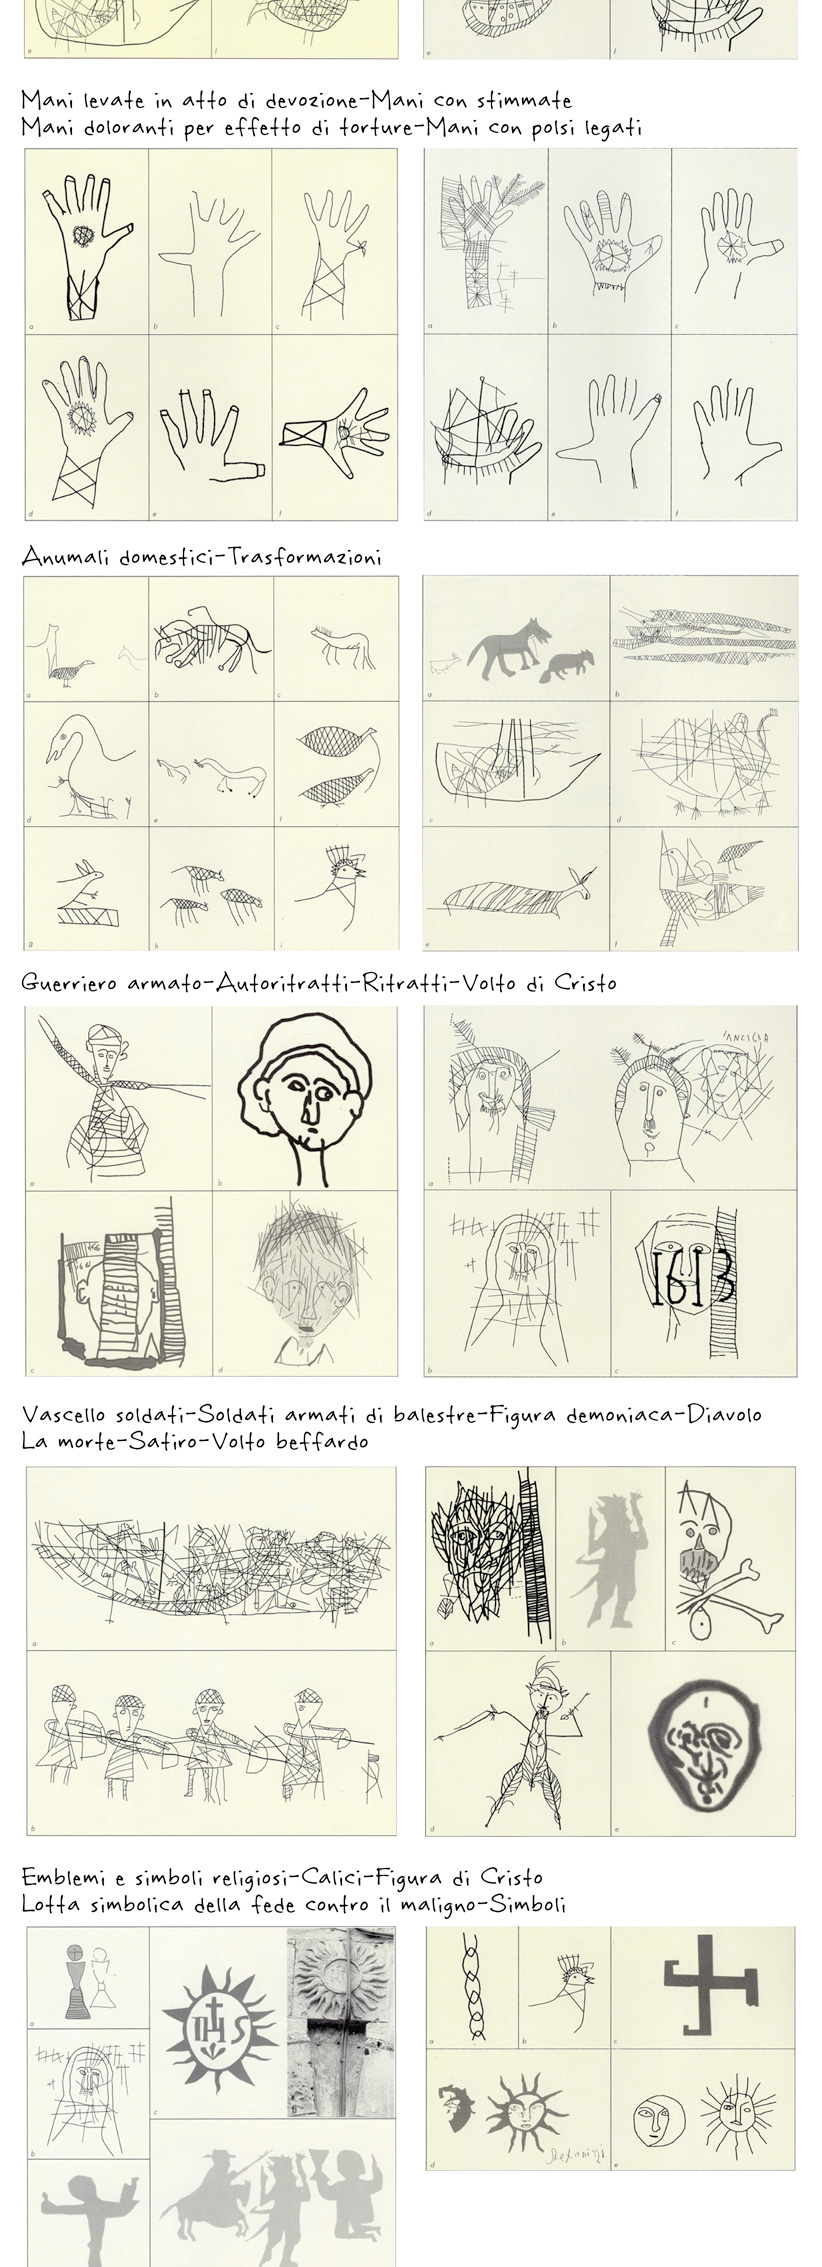 e
f
e
f
Mani levate in atto di devozione-Mani con stimmate
Mani doloranti per effetto di torture-Mani con polsi legati
a
b
c
d
e
f
a
b
c
d
e
f
Anumali domestici-Trasformazioni
a
b
c
d
e
f
g
h
i
a
b
c
d
e
f
Guerriero armato-Autoritratti-Ritratti-Volto di Cristo
a
b
c
d
a
b
c
1613
Vascello soldati-Soldati armati di balestre-Figura demoniaca-Diavolo
La morte-Satiro-Volto beffardo
a
b
a
b
c
d
e
Emblemi e simboli religiosi-Calici-Figura di Cristo
Lotta simbolica della fede contro il maligno-Simboli
a
b
c
IHS
a
b
c
d
e